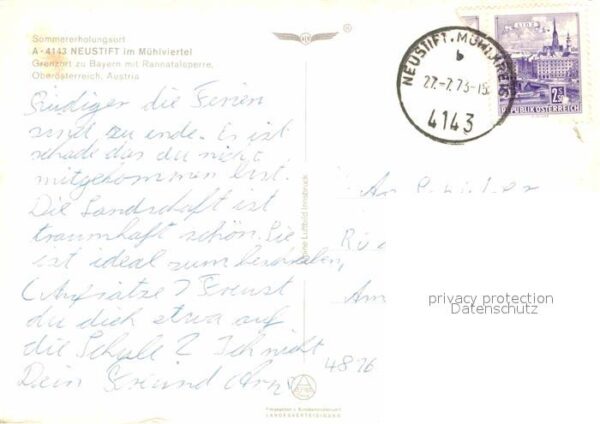 Sommererholungsort
A - 4143 NEUSTIFT im Mühlviertel
Grenzort zu Bayern mit Rannatalsperre,
Oberösterreich, Austria
Rüdiger die Ferien
sind zu ende. Es ist
schade das du nicht
mitgekommen bist.
Die Landschaft ist
traumhaft schön. Sie
ist ideal zum
(Aufsätze) Freust
du dich etwa auf
die Schule? Ich nicht
Dein Freund
NEUSTIFT, MÜHLKREIS
b
27.-7.73-15
4143
LINZ
2.50
REPUBLIK ÖSTERREICH
An
Rü
Am
4876
Alpine Luftbild Innsbruck
Freigegeben v. Bundesministerium f.
LANDESVERTEIDIGUNG
privacy protection
Datenschutz